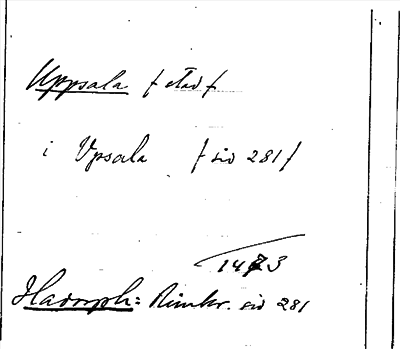 Uppsala / stad /
i Vpsala / sid 281 /
1473
Hadorph: Rimkr. sid 281